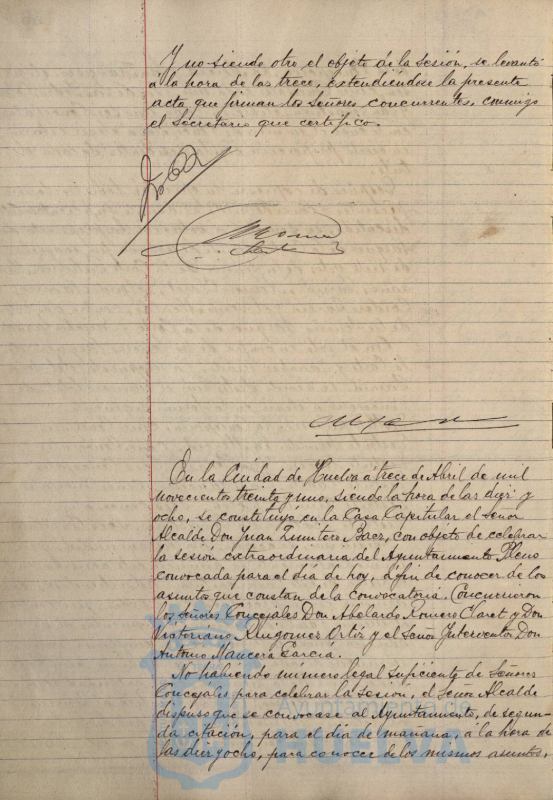 Y no siendo otro el objeto de la sesión, se levantó
á la hora de las trece, extendiéndose la presente
acta que firman los Señores concurrentes, conmigo
el Secretario que certifico.
En la Ciudad de Huelva á trece de Abril de mil
novecientos treinta y uno, siendo la hora de las diez y
ocho, se constituyó en la Casa Capitular el señor
Alcalde Don Juan Quintero Baez, con objeto de celebrar
la sesión extraordinaria del Ayuntamiento Pleno
convocada para el día de hoy, á fin de conocer de los
asuntos que constan de la convocatoria. Concurrieron
los señores Concejales Don Abelardo Romero Claret y Don
Victoriano Ortiz y el Señor Interventor Don
Antonio Mancera García.
No habiendo número legal suficiente de Señores
Concejales para celebrar la sesión, el Señor Alcalde
dispuso que se convocase al Ayuntamiento, de segun-
da citación, para el día de mañana, á la hora de
las diez y ocho, para conocer de los mismos asuntos,
Ayuntamiento de
HUELVA